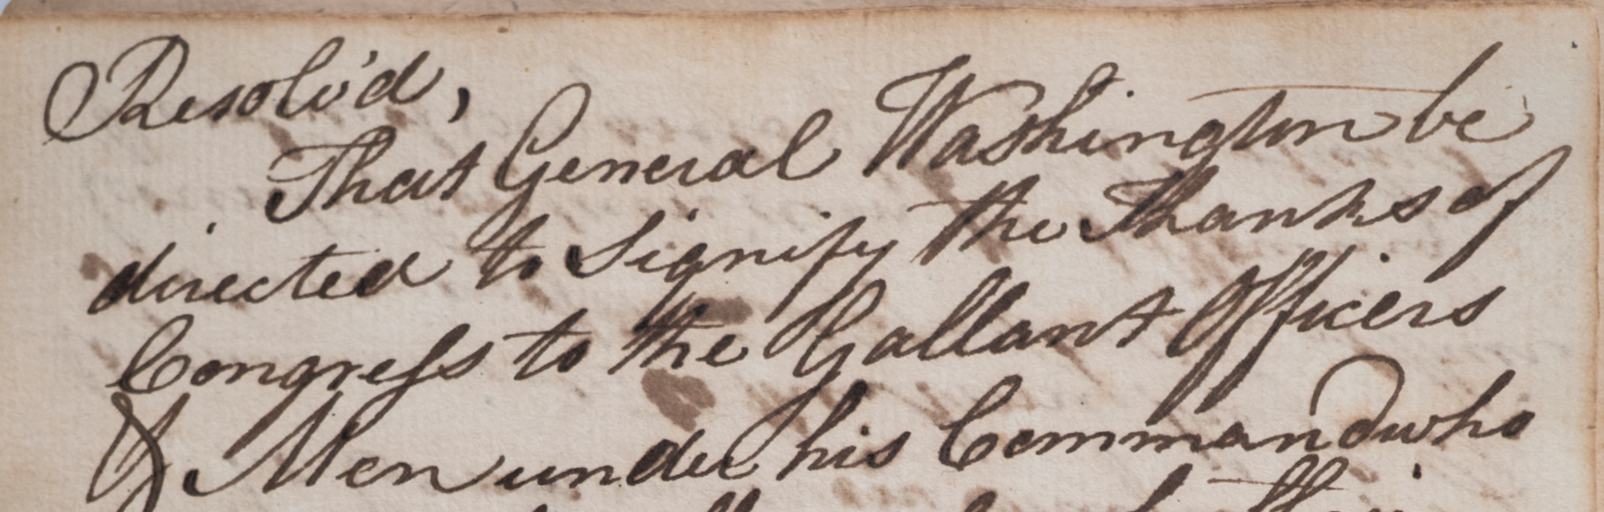 Resolv'd,
That General Washington be
directed to signify the Thanks of
Congress to the Gallant Officers
& Men under his Command who